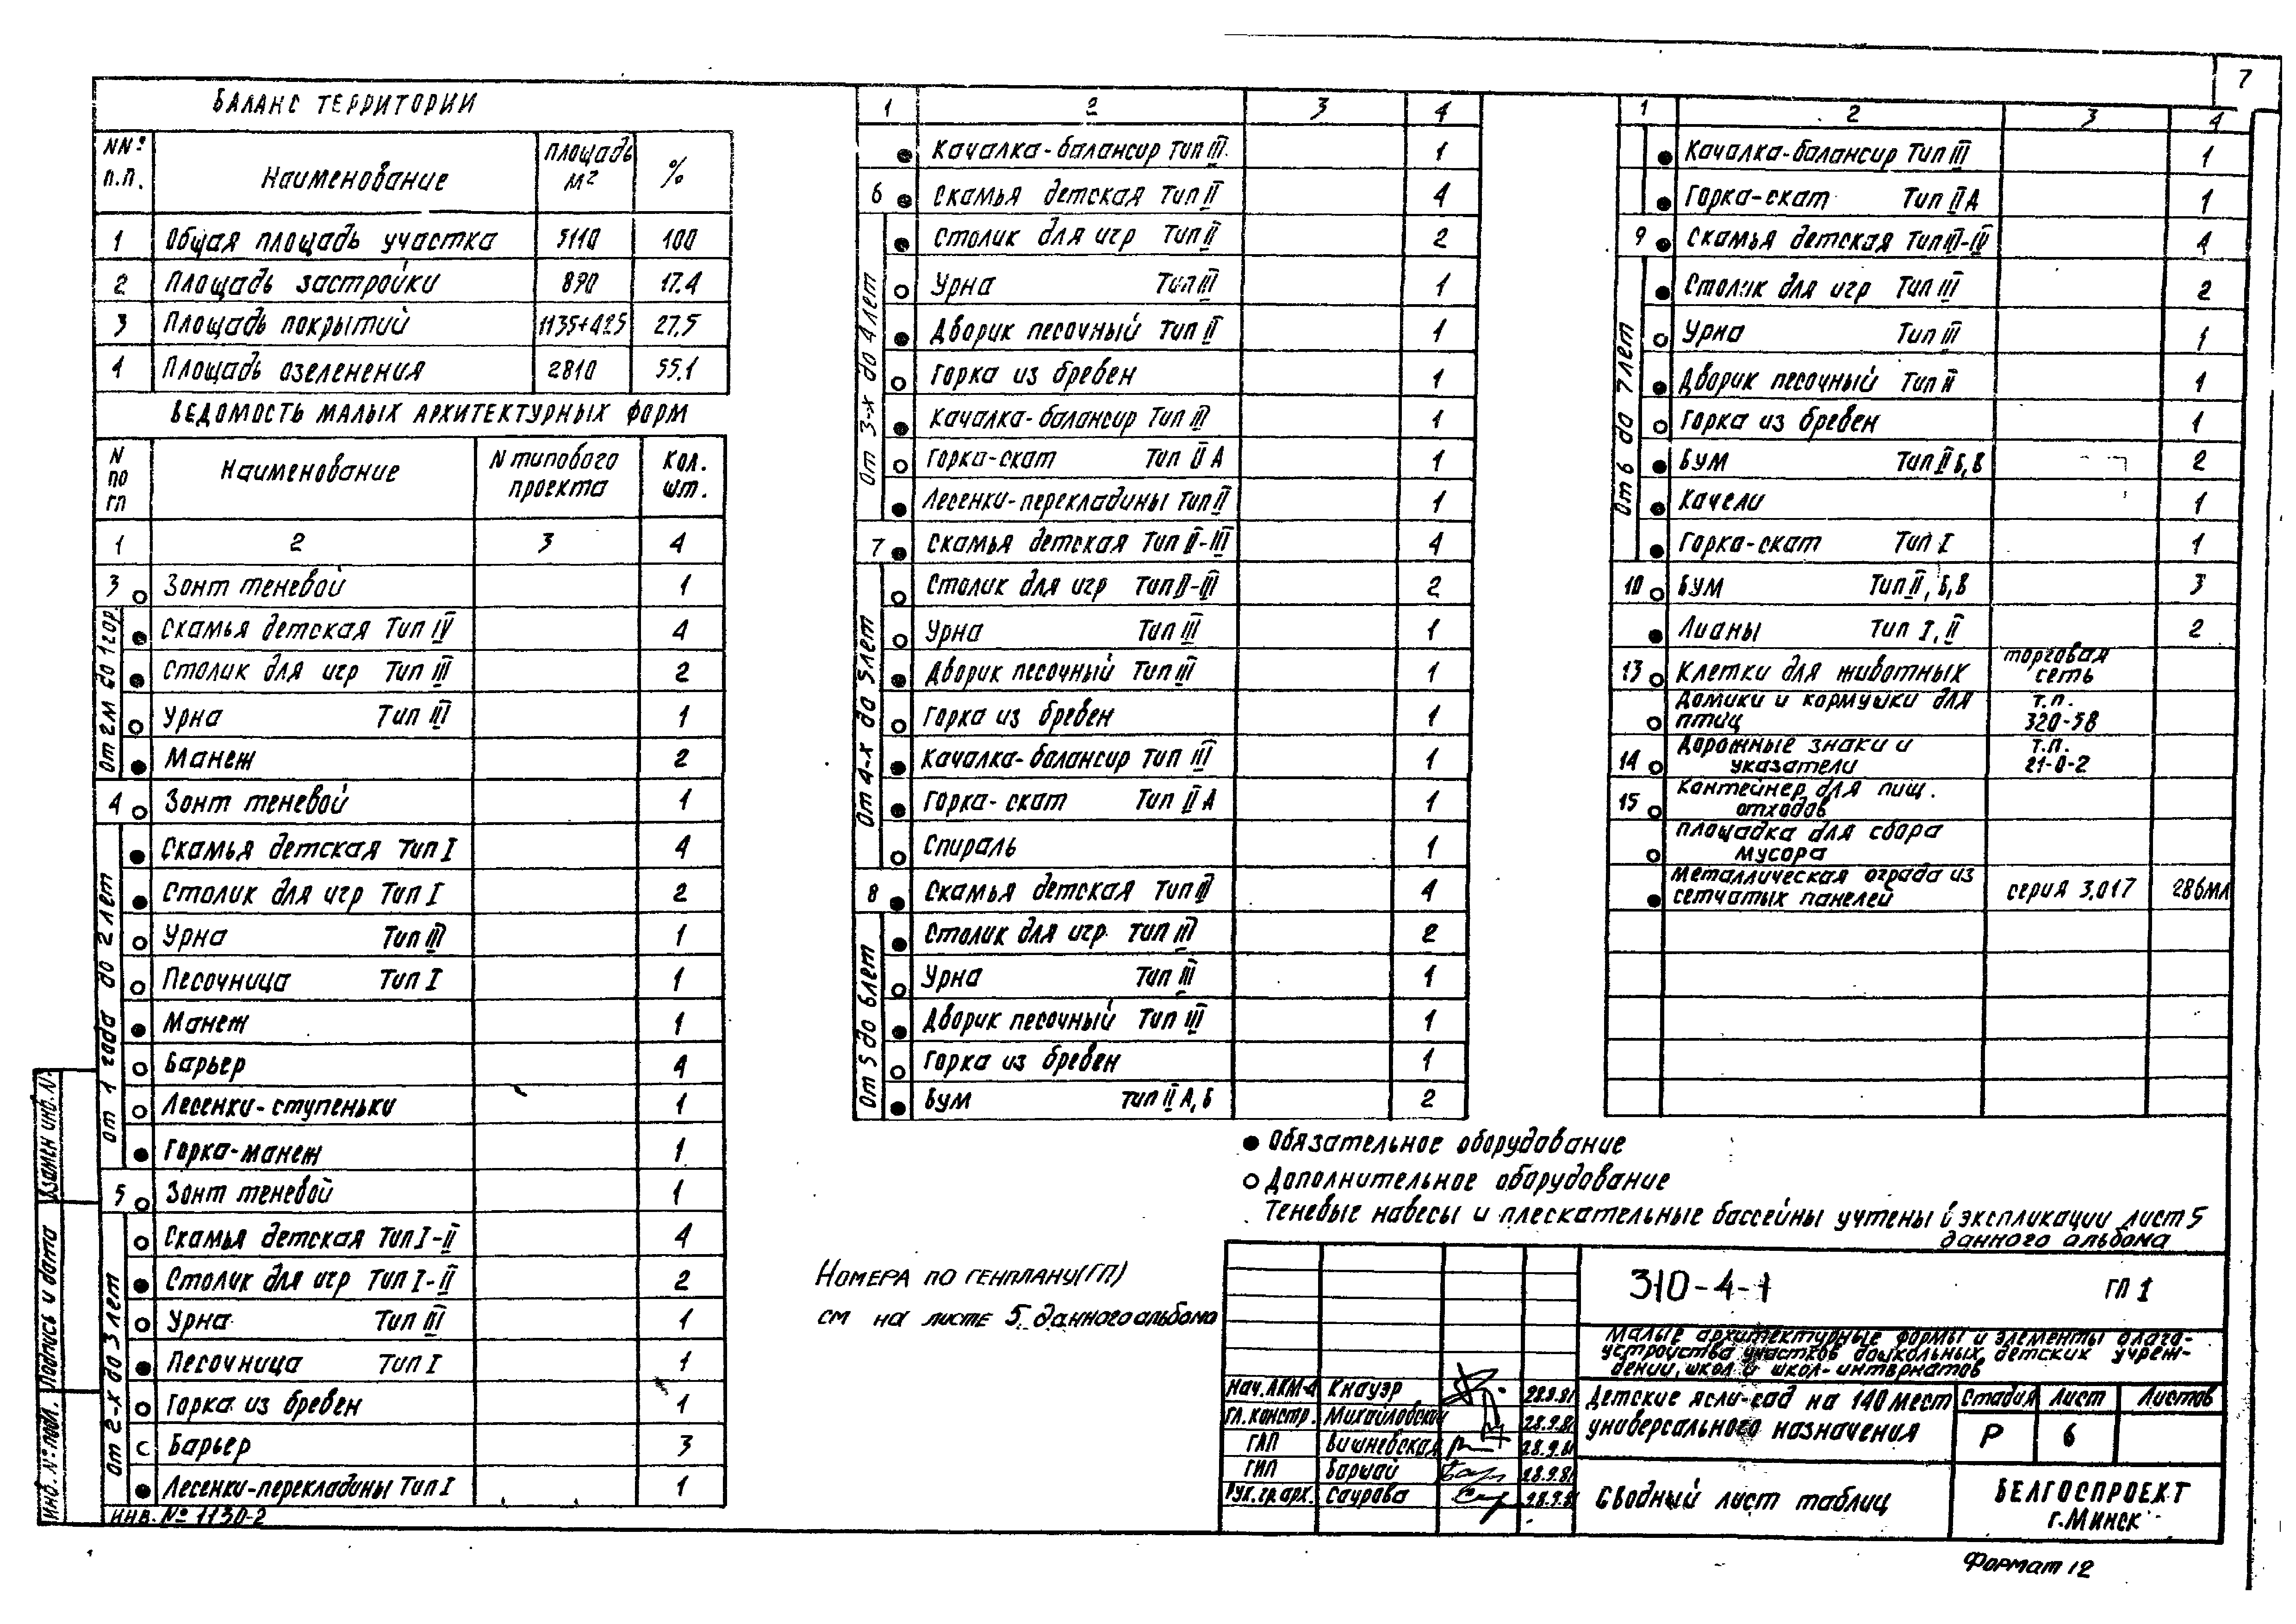 7
БАЛАНС ТЕРРИТОРИИ
NNº п.п. Наименование площадь м² %
1 Общая площадь участка 5110 100
2 Площадь застройки 890 17.4
3 Площадь покрытий 1135+425 27,5
4 Площадь озеленения 2810 55.1
ВЕДОМОСТЬ МАЛЫХ АРХИТЕКТУРНЫХ ФОРМ
N по гп Наименование N типового проекта Кол. шт.
1 2 3 4
3 ○ Зонт теневой 1
От 2м до 1 год.
● Скамья детская Тип IV 4
● Столик для игр Тип III 2
○ Урна Тип III 1
● Манеж 2
4 ○ Зонт теневой 1
от 1 года до 2 лет
● Скамья детская Тип I 4
● Столик для игр Тип I 2
○ Урна Тип III 1
○ Песочница Тип I 1
● Манеж 1
○ Барьер 4
○ Лесенки-ступеньки 1
● Горка-манеж 1
5 ○ Зонт теневой 1
от 2-х до 3 лет
○ Скамья детская Тип I-II 4
● Столик для игр Тип I-II 2
○ Урна Тип III 1
● Песочница Тип I 1
○ Горка из бревен 1
○ Барьер 3
● Лесенки-перекладины Тип I 1
ИНВ. № 1130-2
1 2 3 4
● Качалка-балансир Тип III 1
6 ● Скамья детская Тип II 4
от 3-х до 4 лет
● Столик для игр Тип II 2
○ Урна Тип III 1
● Дворик песочный Тип II 1
○ Горка из бревен 1
● Качалка-балансир Тип III 1
○ Горка-скат Тип II А 1
● Лесенки-перекладины Тип II 1
7 ● Скамья детская Тип II-III 4
От 4-х до 5 лет
○ Столик для игр Тип II-III 2
○ Урна Тип III 1
● Дворик песочный Тип III 1
○ Горка из бревен 1
● Качалка-балансир Тип III 1
● Горка-скат Тип II А 1
○ Спираль 1
8 ● Скамья детская Тип III 4
От 5 до 6 лет
● Столик для игр Тип III 2
○ Урна Тип III 1
● Дворик песочный Тип III 1
○ Горка из бревен 1
● Бум тип II А, Б 2
1 2 3 4
● Качалка-балансир Тип III 1
● Горка-скат Тип II А 1
9 ● Скамья детская Тип III-IV 4
От 6 до 7 лет
● Столик для игр Тип III 2
○ Урна Тип III 1
● Дворик песочный Тип II 1
○ Горка из бревен 1
● Бум Тип II Б, В 2
● Качели 1
● Горка-скат Тип I 1
10 ○ Бум Тип II, Б, В 3
● Лианы Тип I, II 2
13 ○ Клетки для животных торговая сеть
○ Домики и кормушки для птиц т.п. 320-58
14 ○ Дорожные знаки и указатели т.п. 21-0-2
15 ○ Контейнер для пищ. отходов
○ Площадка для сбора мусора
● Металлическая ограда из сетчатых панелей серия 3.017 286мл
● Обязательное оборудование
○ Дополнительное оборудование
Теневые навесы и плескательные бассейны учтены в экспликации лист 5
данного альбома
Номера по генплану (ГП)
см на листе 5 данного альбома
310-4-1 ГП 1
Малые архитектурные формы и элементы благо-
устройства участков дошкольных детских учреж-
дений, школ и школ-интернатов
Нач. АКМ-4 Кнауэр 28.9.81
Гл. констр. Михайловский 28.9.81
ГАП Вишневская 28.9.81
ГИП Баршай 28.9.81
Рук. гр. арх. Саурова 28.9.81
Детские ясли-сад на 140 мест
универсального назначения
Стадия Лист Листов
Р 6
Сводный лист таблиц
БЕЛГОСПРОЕКТ
г. Минск
Формат 12
Взамен инв. N
Подпись и дата
Инв. № подл.